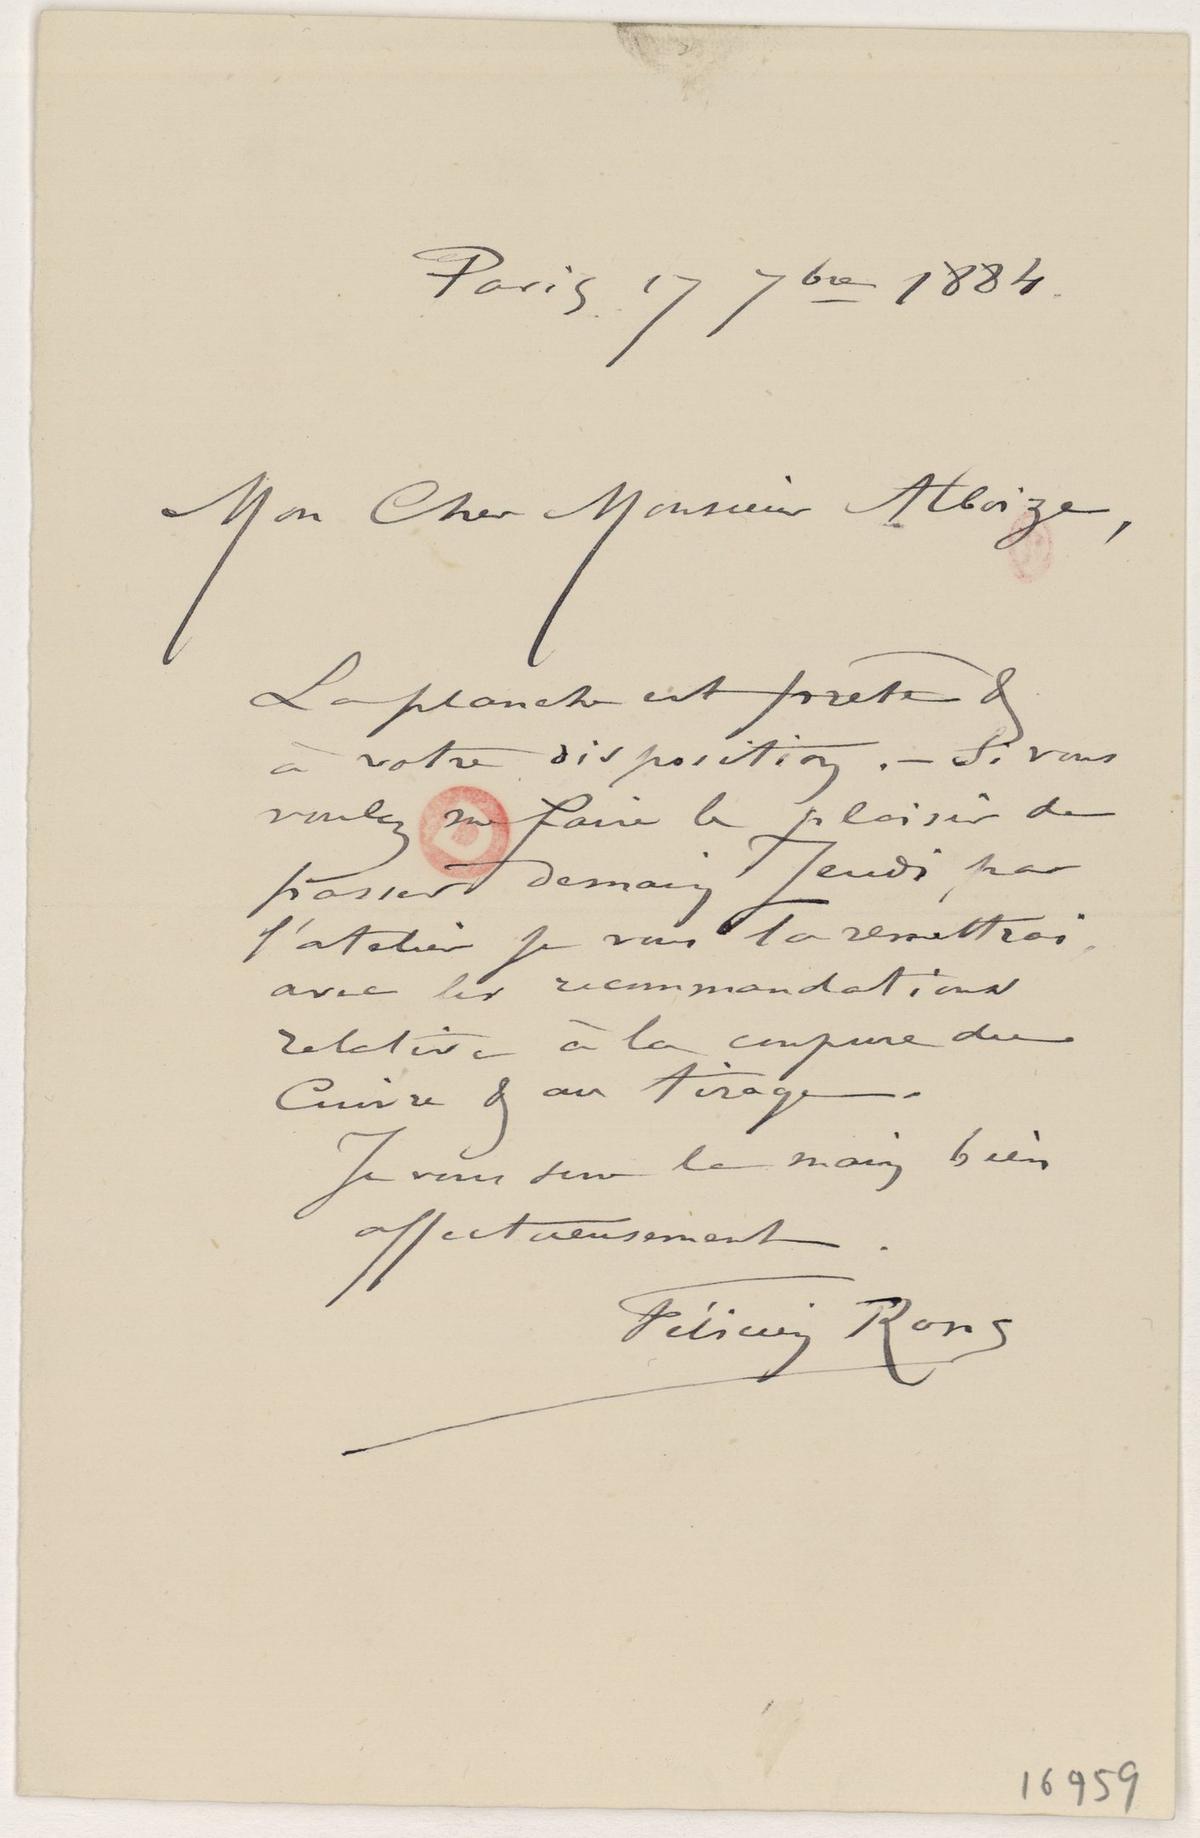 Paris 17 7bre 1884.
Mon Cher Monsieur Alboize,
La planche est prete &
à votre disposition. — Si vous
voulez me faire le plaisir de
passer demain Jeudi par
l'atelier je vous la remettrai,
avec les recommandations
relative à la coupure du
Cuivre & au tirage.
Je vous serre la main bien
affectueusement.
Félicien Rops
16959